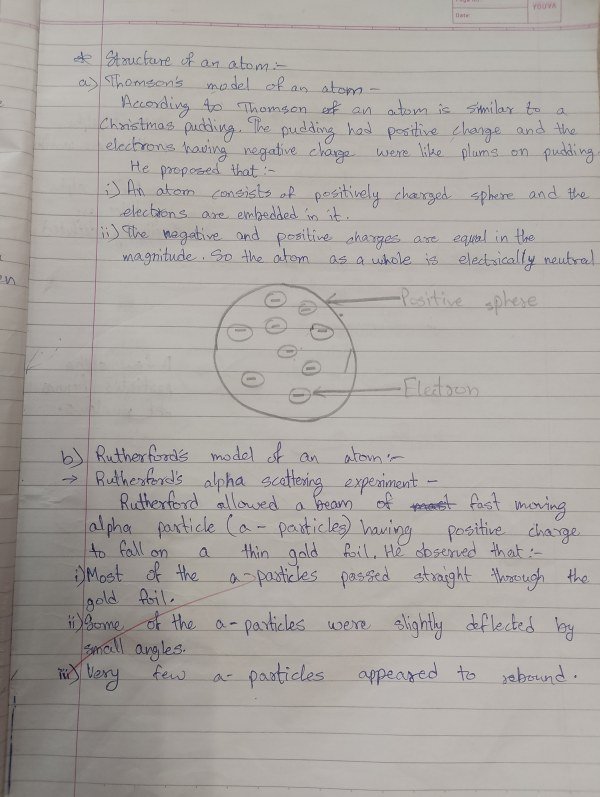 Date:
YOUVA
* Structure of an atom:-
a) Thomson's model of an atom -
According to Thomson of an atom is similar to a
Christmas pudding. The pudding had positive charge and the
electrons having negative charge were like plums on pudding.
He proposed that :-
i) An atom consists of positively charged sphere and the
electrons are embedded in it.
ii) The negative and positive charges are equal in the
magnitude. So the atom as a whole is electrically neutral
Positive sphere
Electron
b) Rutherford's model of an atom:-
→ Rutherford's alpha scattering experiment -
Rutherford allowed a beam of fast moving
alpha particle (a - particles) having positive charge
to fall on a thin gold foil. He observed that :-
i) Most of the a-particles passed straight through the
gold foil.
ii) Some of the a-particles were slightly deflected by
small angles.
iii) Very few a- particles appeared to rebound.